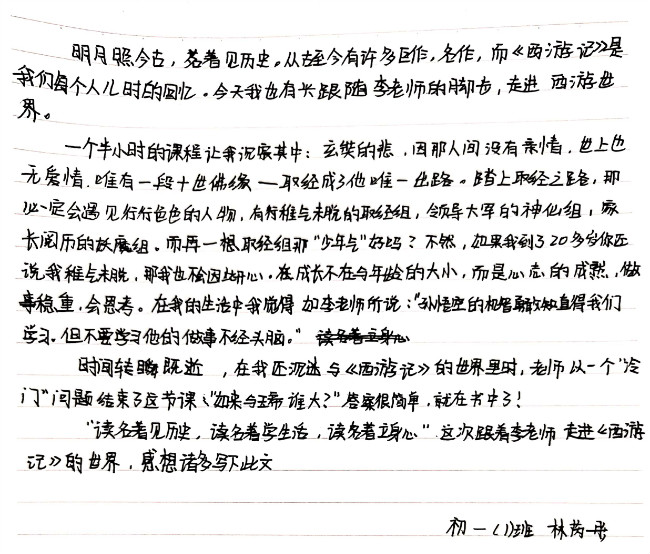 明月照今古，名著见历史。从古至今有许多巨作，名作，而《西游记》是
我们每个人儿时的回忆。今天我也有长跟随李老师的脚步，走进 西游世
界。
一个半小时的课程让我沉寂其中：玄奘的悲，因那人间没有亲情，世上也
无爱情，唯有一段十世佛缘 — 取经成了他唯一出路。踏上取经之路，那
必一定会遇见行行色色的人物，有稚气未脱的取经组，领导大军的神仙组，家
长阅历的妖魔组。而再一想取经组那"少年气"好吗？不然，如果我到了20多岁你还
说我稚气未脱，那我也不会因此开心。在成长不在与年龄的大小，而是心志的成熟，做
事稳重，会思考。在我的生活中我觉得 如李老师所说："孙悟空的机智勇敢知直得我们
学习，但不要学习他的做事不经头脑。" 读名著立身心
时间转瞬既逝，在我还沉迷与《西游记》的世界里时，老师以一个"冷
门"问题结束了这节课："如来与玉帝谁大？"答案很简单，就在书中了！
"读名著见历史，读名著学生活，读名著立身心" 这次跟着李老师 走进《西游
记》的世界，感想诸多写下此文
初一（1）班 林芮